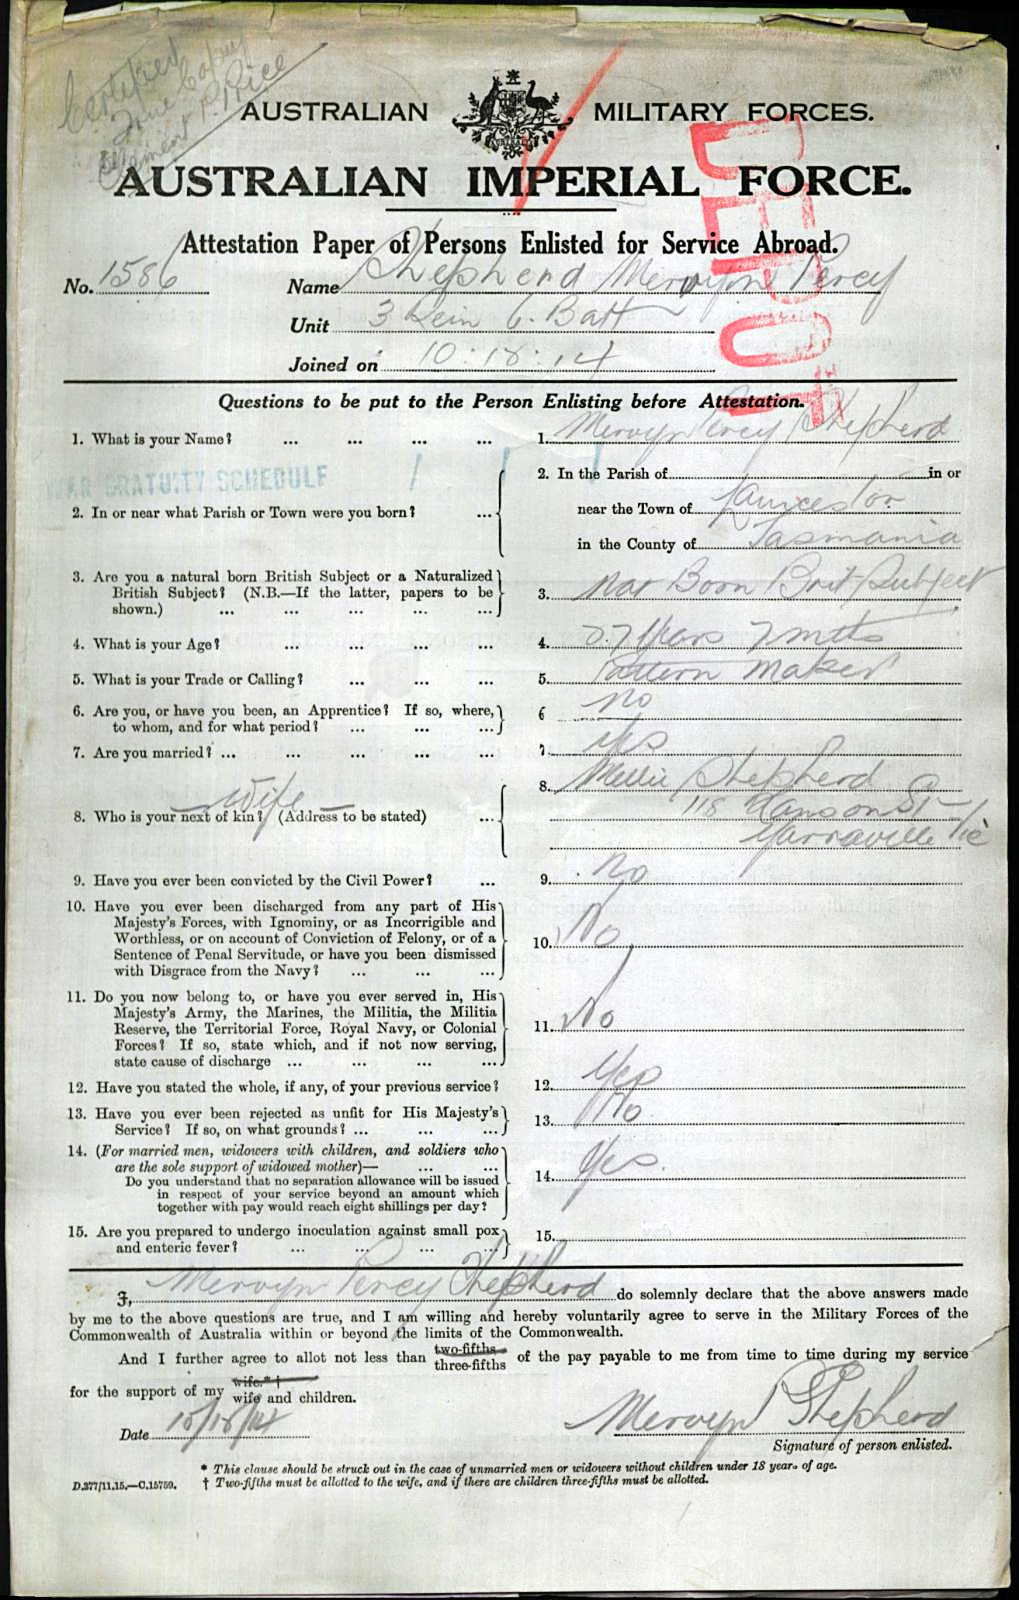 Certified
True Copy
AUSTRALIAN MILITARY FORCES.
AUSTRALIAN IMPERIAL FORCE.
DEPOT
Attestation Paper of Persons Enlisted for Service Abroad.
No. 1586 Name Shepherd Mervyn Percy
Unit 3 Rein 6. Batt
Joined on
Questions to be put to the Person Enlisting before Attestation.
1. What is your Name? ... ... ... ... 1. Mervyn Percy Shepherd
AR GRATUITY SCHEDULE
2. In or near what Parish or Town were you born? ... 2. In the Parish of in or
near the Town of
in the County of Tasmania
3. Are you a natural born British Subject or a Naturalized
British Subject? (N.B.—If the latter, papers to be
shown.) ... ... ... ... ... 3. Nat Born Brit Subject
4. What is your Age? ... ... ... ... 4. 27 Years 7 mths
5. What is your Trade or Calling? ... ... ... 5. Pattern maker
6. Are you, or have you been, an Apprentice? If so, where,
to whom, and for what period? ... ... ... 6 no
7. Are you married? ... ... ... ... ... 7. yes
wife
8. Who is your next of kin? (Address to be stated) ... 8. Shepherd
118 St
Yarraville Vic
9. Have you ever been convicted by the Civil Power? ... 9. No
10. Have you ever been discharged from any part of His
Majesty's Forces, with Ignominy, or as Incorrigible and
Worthless, or on account of Conviction of Felony, or of a
Sentence of Penal Servitude, or have you been dismissed
with Disgrace from the Navy? ... ... ... 10. No
11. Do you now belong to, or have you ever served in, His
Majesty's Army, the Marines, the Militia, the Militia
Reserve, the Territorial Force, Royal Navy, or Colonial
Forces? If so, state which, and if not now serving,
state cause of discharge ... ... ... ... 11. No
12. Have you stated the whole, if any, of your previous service? 12. Yes
13. Have you ever been rejected as unfit for His Majesty's
Service? If so, on what grounds? ... ... ... 13. No
14. (For married men, widowers with children, and soldiers who
are the sole support of widowed mother)— ... ...
Do you understand that no separation allowance will be issued
in respect of your service beyond an amount which
together with pay would reach eight shillings per day? 14. Yes.
15. Are you prepared to undergo inoculation against small pox
and enteric fever? ... ... ... ... 15.
I, Mervyn Percy Shepherd do solemnly declare that the above answers made
by me to the above questions are true, and I am willing and hereby voluntarily agree to serve in the Military Forces of the
Commonwealth of Australia within or beyond the limits of the Commonwealth.
And I further agree to allot not less than two-fifths three-fifths of the pay payable to me from time to time during my service
for the support of my wife.*† wife and children.
Date
Mervyn P Shepherd
Signature of person enlisted.
* This clause should be struck out in the case of unmarried men or widowers without children under 18 years of age.
D.377/11.15.—C.15759. † Two-fifths must be allotted to the wife, and if there are children three-fifths must be allotted.